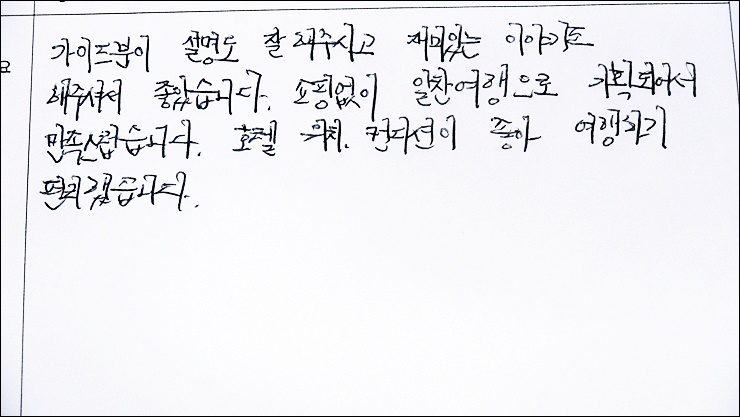 가이드분이 설명도 잘 해주시고 재미있는 이야기도
해주셔서 좋았습니다. 쇼핑없이 알찬여행으로 기획되어서
만족스럽습니다. 호텔 위치, 컨디션이 좋아 여행하기
편리했습니다.
요